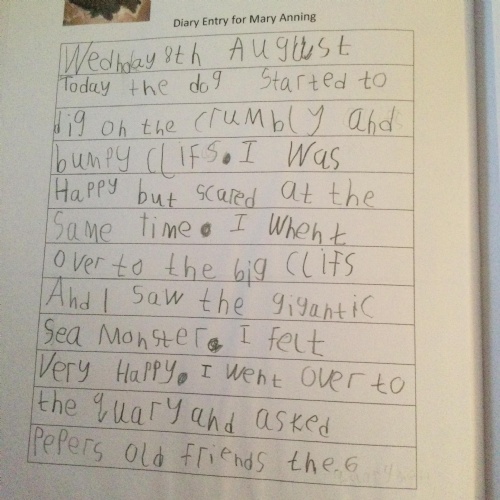 Diary Entry for Mary Anning
Wedhday 8th August
Today the dog started to
dig on the crumbly and
bumpy clifs. I was
Happy but scared at the
same time. I whent
over to the big clifs
And I saw the gigantic
sea monster. I felt
very Happy. I went over to
the quary and asked
PePers old friends the.6